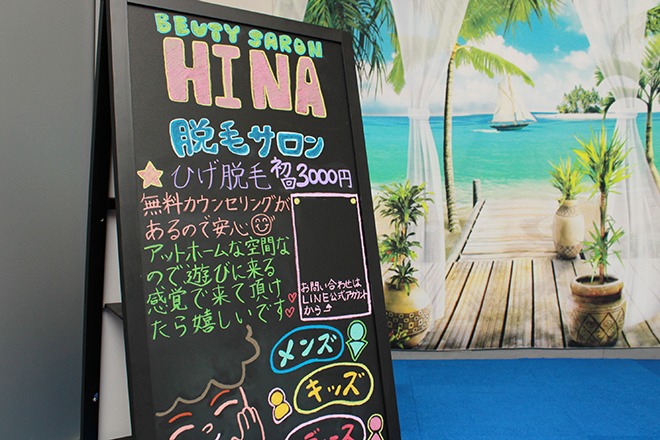 BEUTY SARON
HINA
脱毛サロン
ひげ脱毛 初回3000円
無料カウンセリングが
あるので安心
アットホームな空間な
ので遊びに来る
感覚で来て頂け
たら嬉しいです
お問い合わせは
LINE公式アカウント
から
メンズ
キッズ
ディース